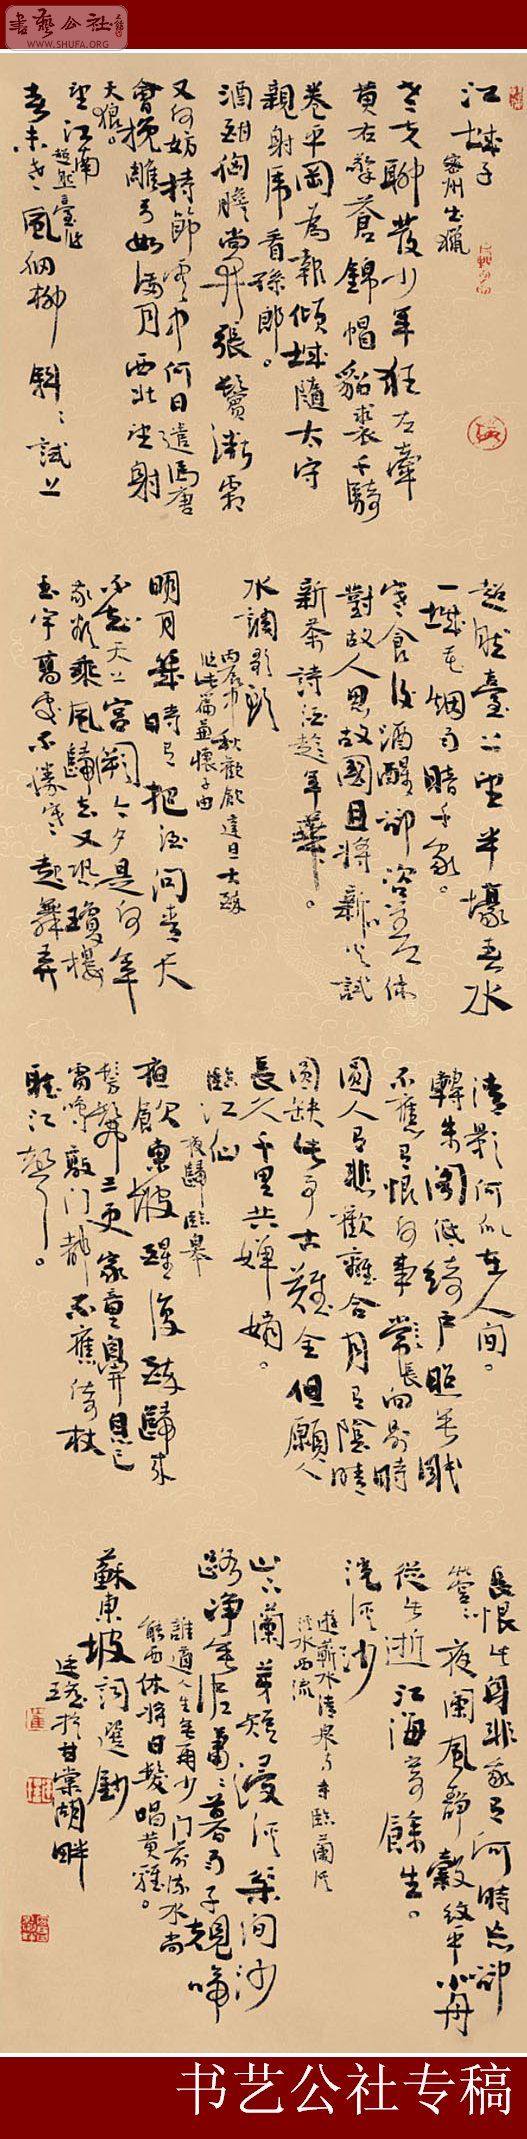 书艺公社
WWW.SHUFA.ORG
江城子 密州出獵
老夫聊發少年狂左牽
黃右擎蒼錦帽貂裘千騎
卷平岡為報傾城隨太守
親射虎看孫郎。
酒酣胸膽尚開張鬢微霜
又何妨持節雲中何日遣馮唐
會挽雕弓如滿月西北望射
天狼。
望江南 超然臺作
春未老風細柳斜斜試上
超然臺上望半壕春水
一城花烟雨暗千家。
寒食後酒醒卻咨嗟休
對故人思故國且將新火試
新茶詩酒趁年華。
水調歌頭
丙辰中秋歡飲達旦大醉
作此篇兼懷子由
明月幾時有把酒問青天
不知天上宮闕今夕是何年
我欲乘風歸去又恐瓊樓
玉宇高處不勝寒起舞弄
清影何似在人間。
轉朱閣低綺戶照無眠
不應有恨何事長向別時
圓人有悲歡離合月有陰晴
圓缺此事古難全但願人
長久千里共嬋娟。
臨江仙 夜歸臨皋
夜飲東坡醒復醉歸來
髣髴三更家童鼻息已
雷鳴敲門都不應倚杖
聽江聲。
長恨此身非我有何時忘卻
營營夜闌風靜縠紋平小舟
從此逝江海寄餘生。
浣溪沙
遊蘄水清泉寺寺臨蘭溪
溪水西流
山下蘭芽短浸溪松間沙
路淨無泥蕭蕭暮雨子規啼
誰道人生無再少門前流水尚
能西休將白髮唱黃雞。
蘇東坡詞選鈔
於甘棠湖畔
书艺公社专稿